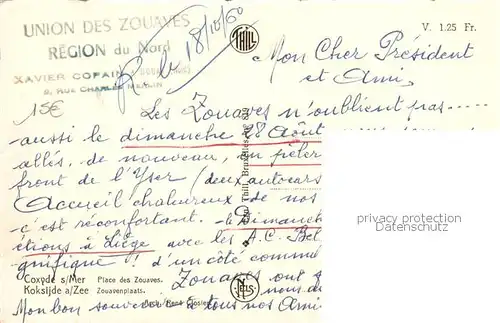 UNION DES ZOUAVES
RÉGION du Nord
XAVIER COPAIN
9, RUE CHARLES MERLIN
15€
R. b 18/10/60
THILL
V. 1.25 Fr.
Mon Cher Président
et Ami,
Les Zouaves n'oublient pas.....
aussi le dimanche 28 Août
allés, de nouveau, en pèler
front de l'Yser (deux autocars
Accueil chaleureux de nos
c'est réconfortant. - le Dimanch
étions à Liège avec les A.C. Bel
gnifique! d'un côté comm
Zouaves ont
Mon bon souvenir à tous nos Ami
Coxyde s/Mer Place des Zouaves.
Koksijde a/Zee Zouavenplaats.
NELS
Thill, Bruxelles
privacy protection
Datenschutz